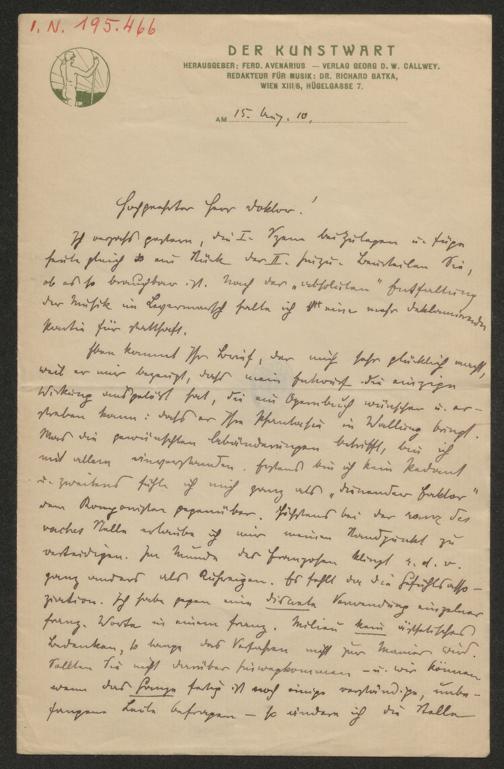 I. N. 195.466
DER KUNSTWART
HERAUSGEBER: FERD. AVENARIUS — VERLAG GEORG D. W. CALLWEY.
REDAKTEUR FÜR MUSIK: DR. RICHARD BATKA,
WIEN XIII/6, HÜGELGASSE 7.
AM 15. Aug. 10.
Hochgeehrter Herr Doktor!
Ich vergaß gestern, die I. Szene beizulegen u. füge
heute gleich ein Stück der II. hinzu. Beurteilen Sie,
ob es so brauchbar ist. Nach der „absoluten" Entfaltung
der Musik im halte ich eine mehr deklamierende
Partie für statthaft.
Eben kommt Ihr Brief, der mich sehr glücklich macht,
weil er mir bezeugt, daß mein Entwurf die einzige
Wirkung ausgelöst hat, die ein Opernbuch wünschen u. er-
streben kann: daß er Ihre Phantasie in Wallung bringt.
Was die gewünschten Abänderungen betrifft, bin ich
mit allem einverstanden. Erstens bin ich kein Pedant
u. zweitens fühle ich mich ganz als „dienender Faktor"
dem Komponisten gegenüber. Höchstens bei der
Stelle erlaube ich mir meinen Standpunkt zu
verteidigen. Im Munde des Franzosen klingt r. d. v.
ganz anders als Kuhreigen. Es fehlt da die Gefühlsasso-
ziation. Ich habe gegen eine diskrete Verwendung einzelner
franz. Worte in einem franz. Milieu kein ästhetisches
Bedenken, so lange das Verfahren nicht zur Manier wird.
Sollten Sie nicht darüber hinwegkommen – u. wir können
wenn das Ganze fertig ist noch einige verständige, unbe-
fangene Leute befragen – so ändere ich die Stelle